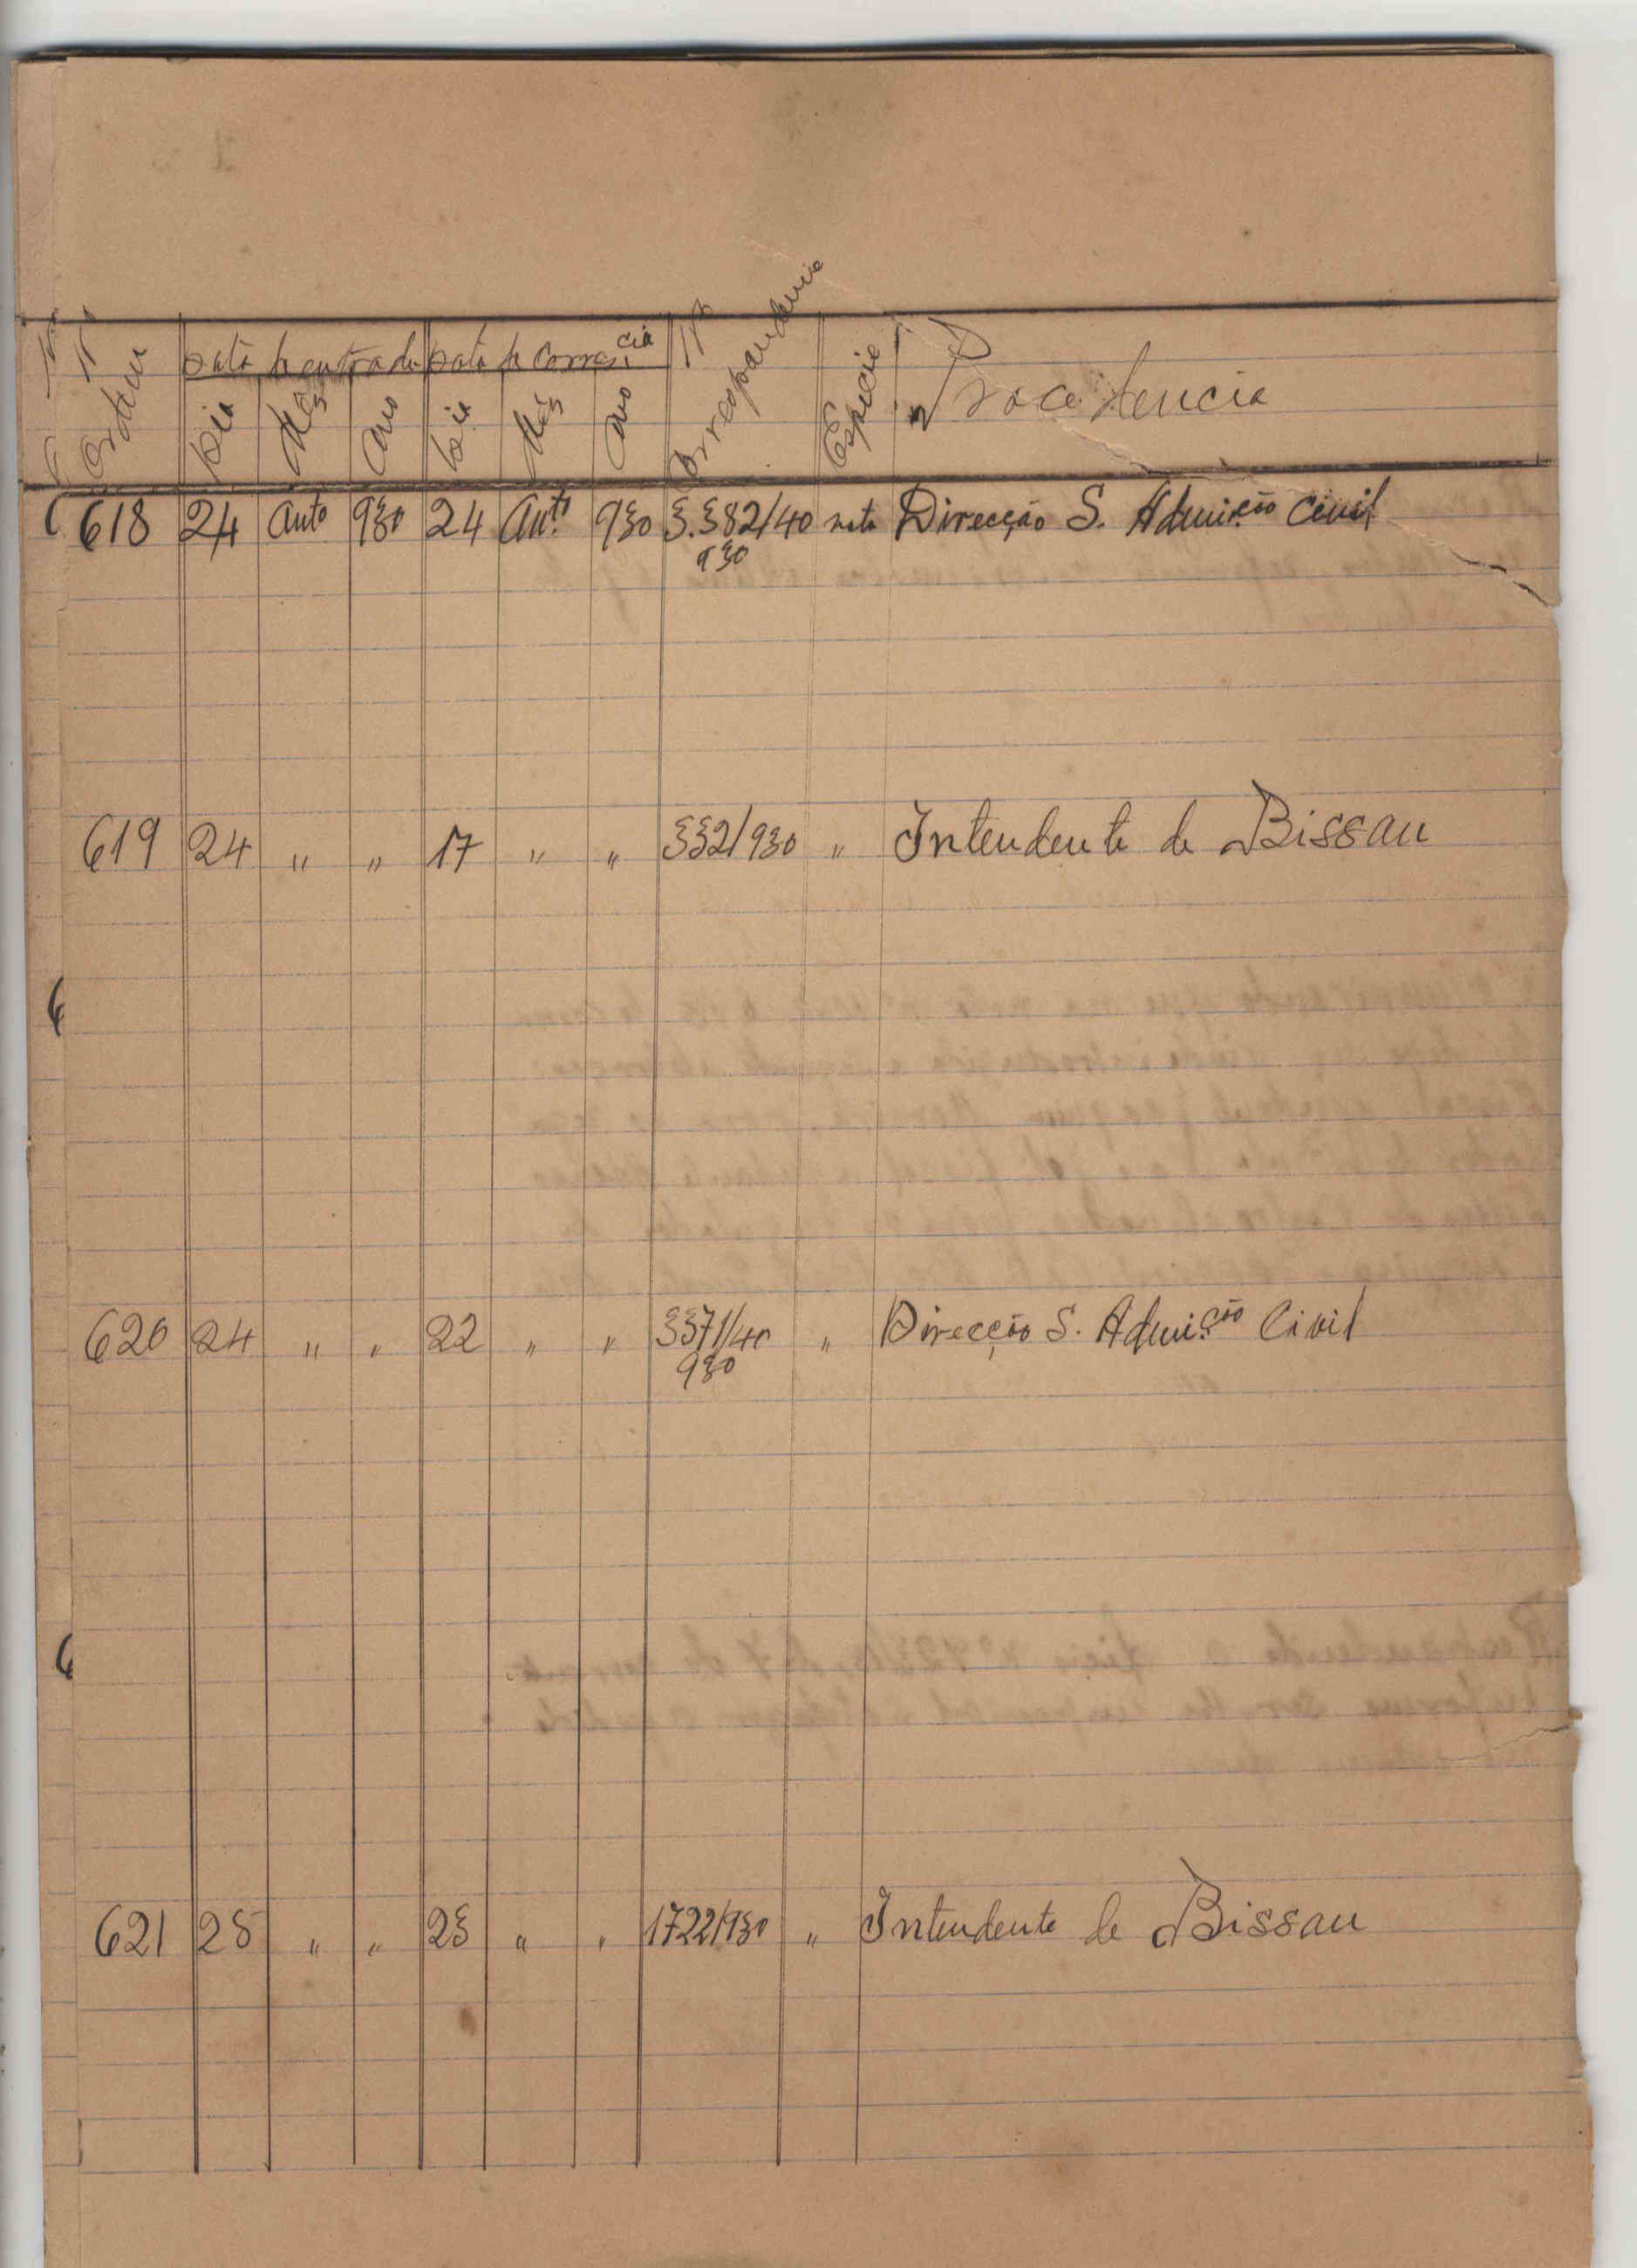 Nº Ordem | Data de entrada | Data de Corresᶜⁱᵃ | Nº Correspondencia | Especie | Procedencia
Dia | Mês | Ano | Dia | Mês | Ano
618 | 24 | Autº | 930 | 24 | Autº | 930 | 3.382/40 | nota | Direcção S. Admi.ção Civil
930
619 | 24 | " | " | 17 | " | " | 332/930 | " | Intendente de Bissau
620 | 24 | " | " | 22 | " | " | 3371/40 | " | Direcção S. Admi.ção Civil
930
621 | 25 | " | " | 23 | " | " | 1722/930 | " | Intendente de Bissau